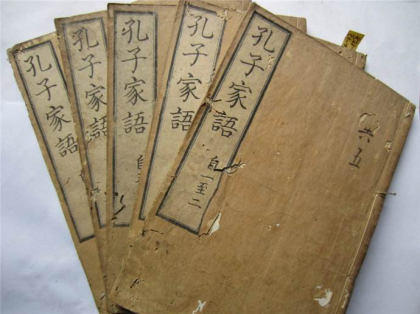 孔子家語
孔子家語
孔子家語
自
孔子家語
孔子家語
自一至二
共五